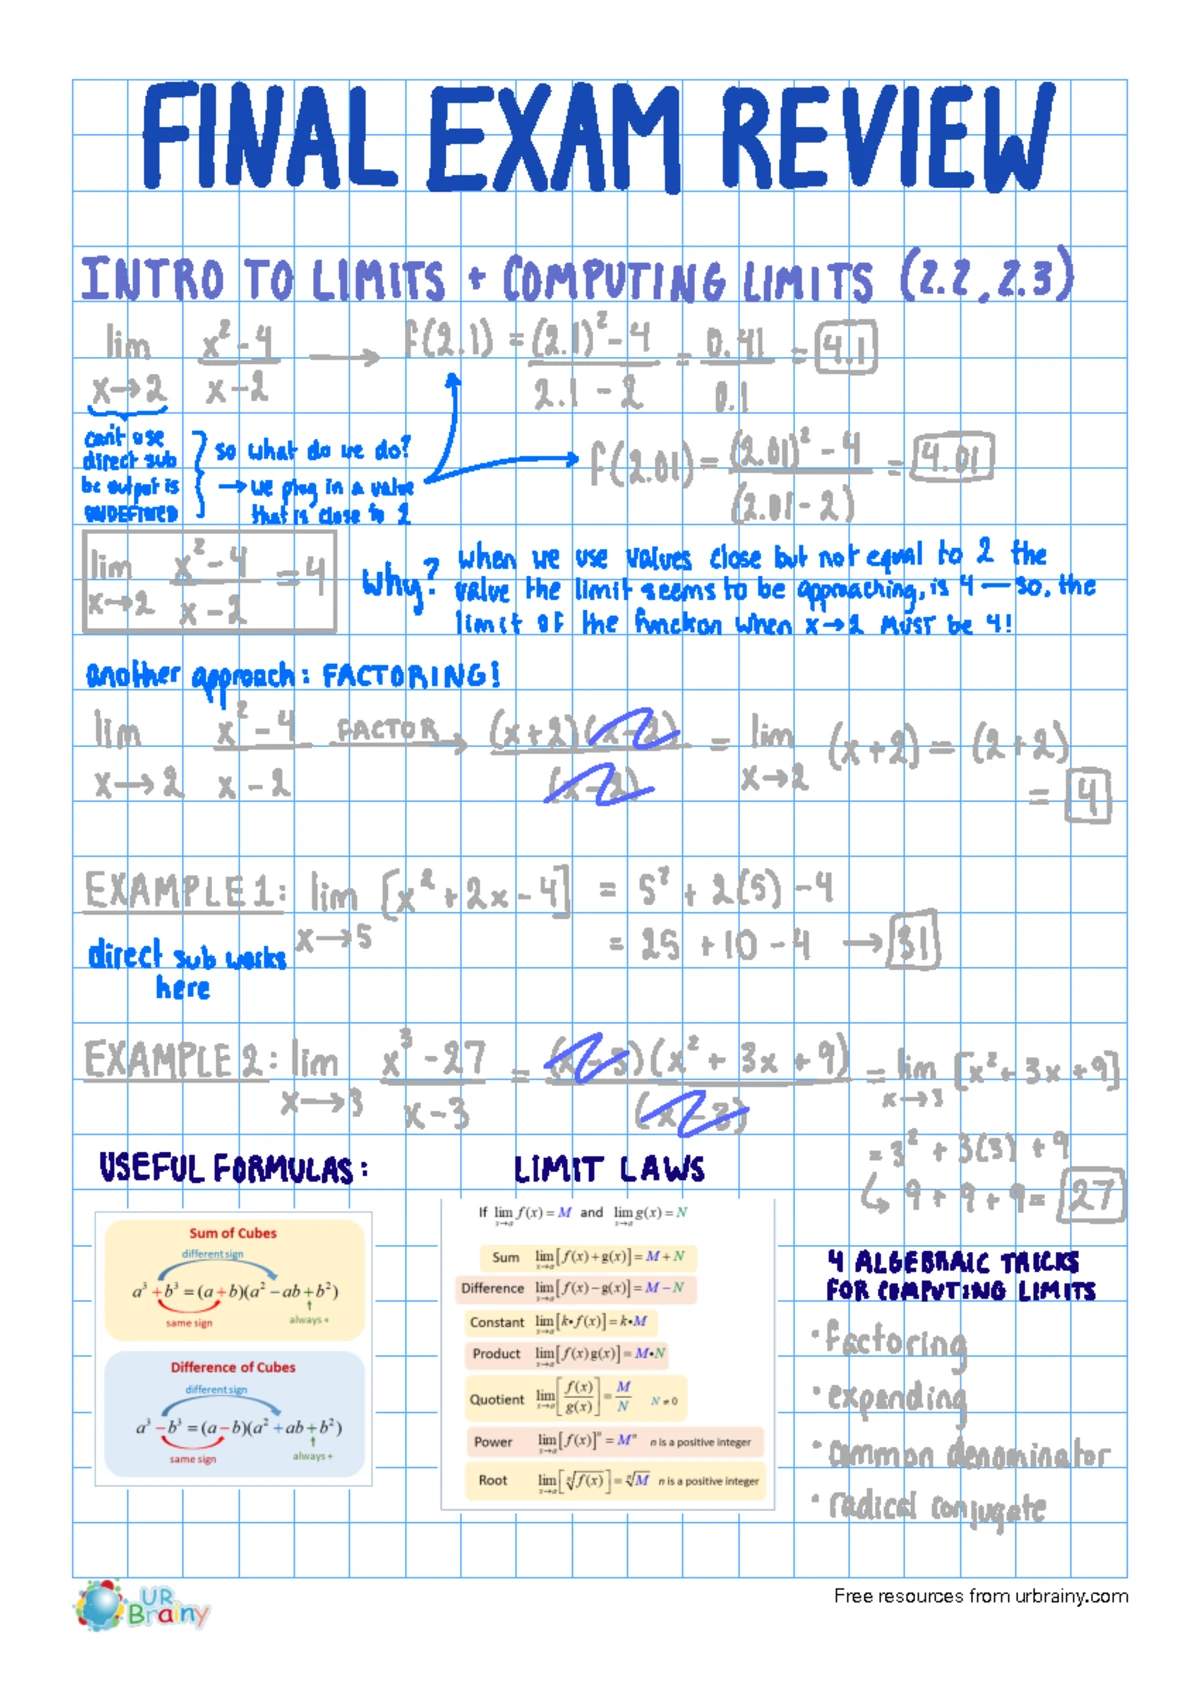 FINAL EXAM REVIEW
INTRO TO LIMITS + COMPUTING LIMITS (2.2, 2.3)
lim x→2 (x² - 4)/(x - 2) → f(2.1) = ((2.1)² - 4)/(2.1 - 2) = 0.41/0.1 = 4.1
can't use
direct sub
bc output is
UNDEFINED
so what do we do?
→ we plug in a value
that is close to 2
f(2.01) = ((2.01)² - 4)/(2.01 - 2) = 4.01
lim x→2 (x² - 4)/(x - 2) = 4
why?
when we use values close but not equal to 2 the
value the limit seems to be approaching, is 4 — so, the
limit of the function when x→2 MUST be 4!
another approach: FACTORING!
lim x→2 (x² - 4)/(x - 2) FACTOR → (x+2)(x-2)/(x-2) = lim x→2 (x+2) = (2+2)
= 4
EXAMPLE 1: lim x→5 [x² + 2x - 4] = 5² + 2(5) - 4
= 25 + 10 - 4 → 31
direct sub works
here
EXAMPLE 2: lim x→3 (x³ - 27)/(x - 3) = (x-3)(x² + 3x + 9)/(x-3) = lim x→3 [x² + 3x + 9]
= 3² + 3(3) + 9
↳ 9 + 9 + 9 = 27
USEFUL FORMULAS:
Sum of Cubes
different sign
a³ + b³ = (a + b)(a² − ab + b²)
same sign
always +
Difference of Cubes
different sign
a³ − b³ = (a − b)(a² + ab + b²)
same sign
always +
LIMIT LAWS
If lim x→a f(x) = M and lim x→a g(x) = N
Sum lim x→a [f(x) + g(x)] = M + N
Difference lim x→a [f(x) − g(x)] = M − N
Constant lim x→a [k•f(x)] = k•M
Product lim x→a [f(x)g(x)] = M•N
Quotient lim x→a [f(x)/g(x)] = M/N N ≠ 0
Power lim x→a [f(x)]ⁿ = Mⁿ n is a positive integer
Root lim x→a [ⁿ√f(x)] = ⁿ√M n is a positive integer
4 ALGEBRAIC TRICKS
FOR COMPUTING LIMITS
• factoring
• expanding
• common denominator
• radical conjugate
UR
Brainy
Free resources from urbrainy.com